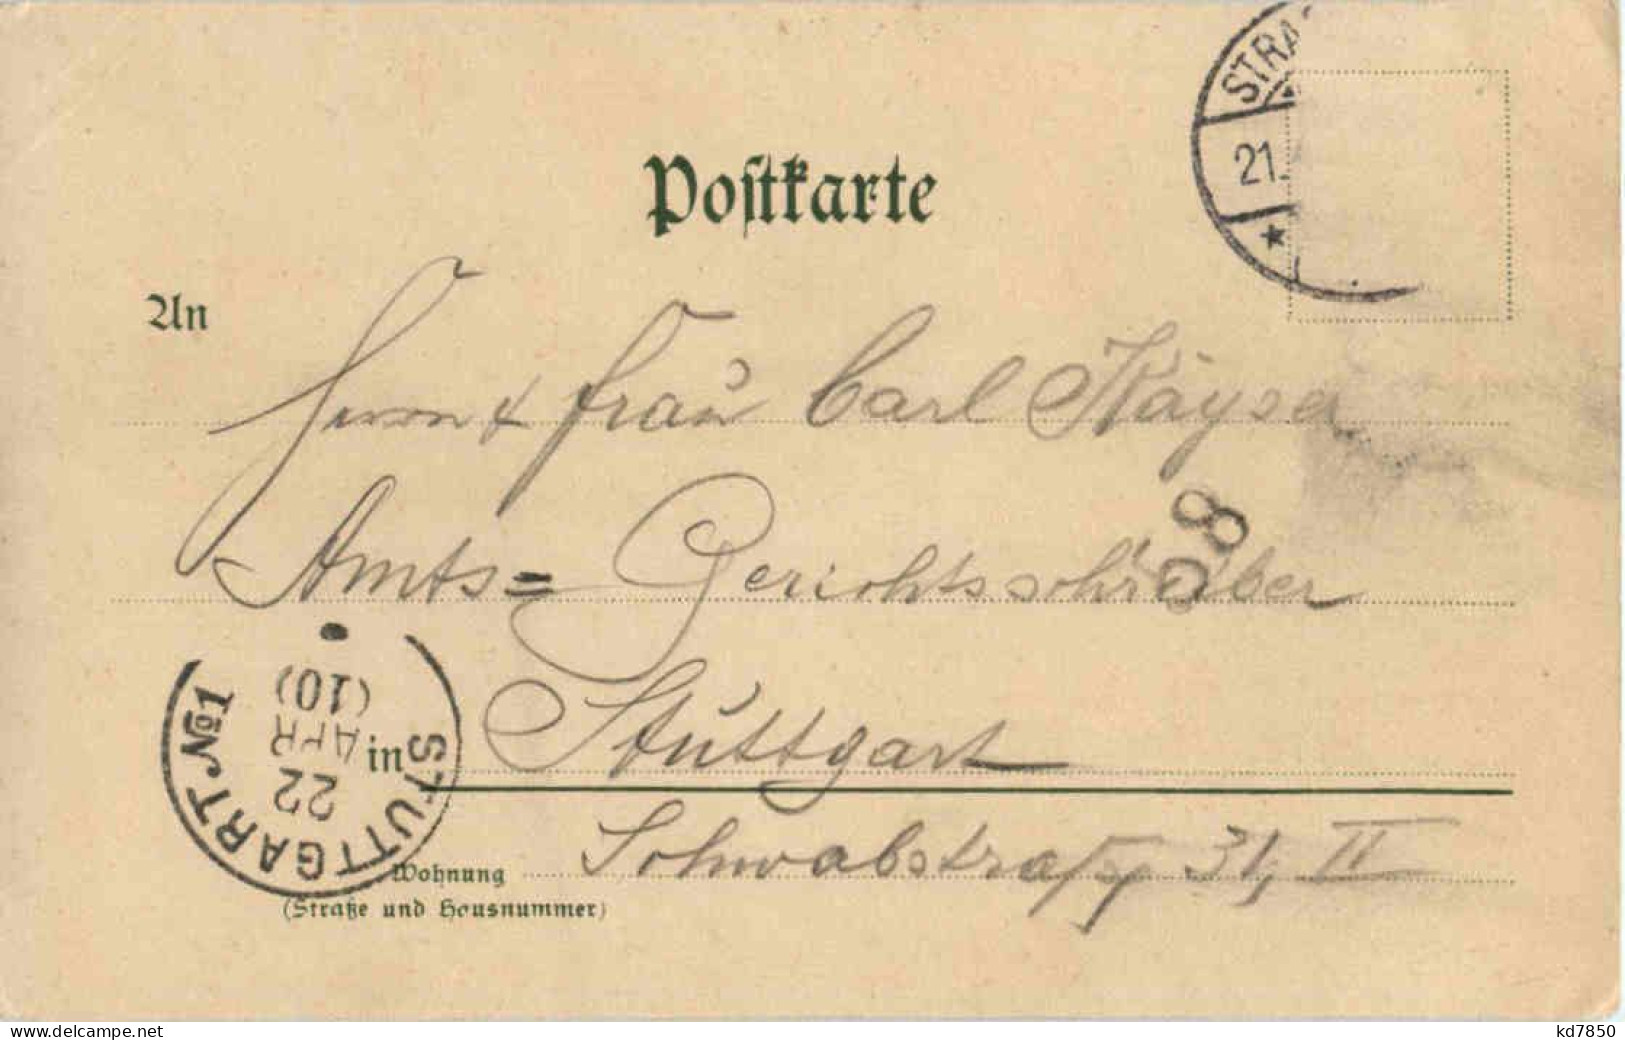 STRA
21.
Postkarte
An
Herrn & Frau Carl Kayser
Amts= Gerichtsschreiber
98
in Stuttgart
STUTTGART No 1
22
APR
(10)
Wohnung Schwabstrasse 31, II
(Straße und Hausnummer)
www.delcampe.net
kd7850